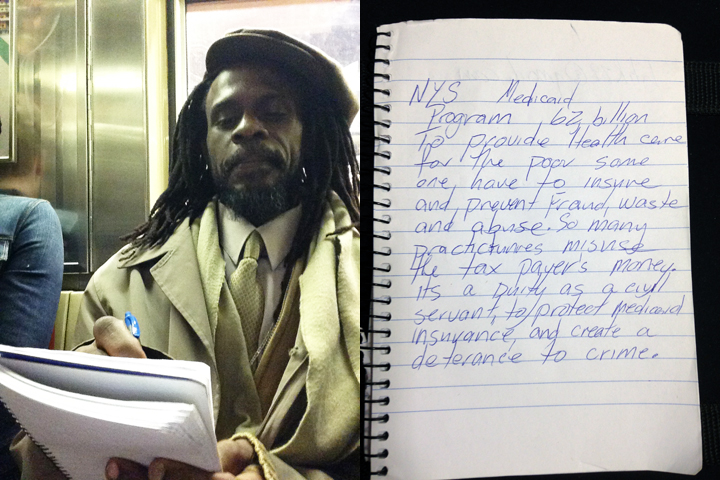 NYS Medicaid
Program 62 billion
To provide Health care
for the poor some
one, have to insure
and prevent Fraud, waste
and abuse. So many
practictunres misuse
the tax payer's money.
Its a Duity as a civil
servant, to protect medicaid
insurance, and create a
deterance to crime.